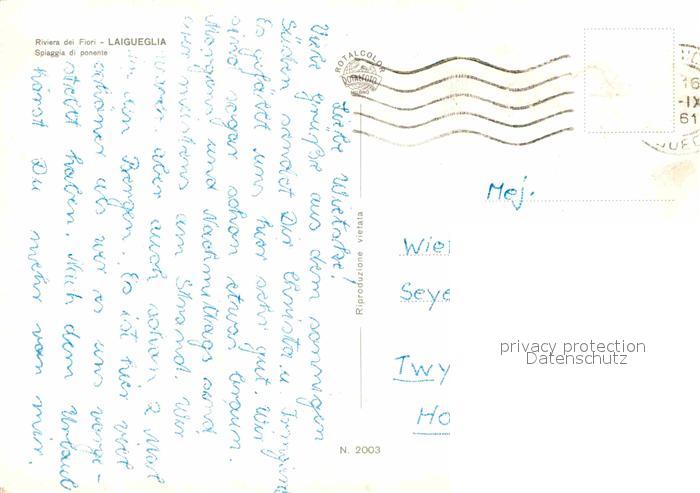 Riviera dei Fiori - LAIGUEGLIA
Spiaggia di ponente
ROTALCOLOR
ROTALFOTO
MILANO
16
-IX
61
Liebe Wietske!
Viele Grüße aus dem sonnigen
Süden sendet Dir Christa u.
Es gefällt uns hier sehr gut. Wir
sind sogar schon etwas braun.
Morgens und Nachmittags sind
wir meistens am Strand. Wir
waren aber auch schon 2 Mal
in den Bergen. Es ist hier viel
schöner als wir es uns vorge-
stellt haben. Nach dem Urlaub
hörst Du mehr von mir.
Mej.
Wie
Seye
Twy
Ho
Riproduzione vietata
N. 2003
privacy protection
Datenschutz